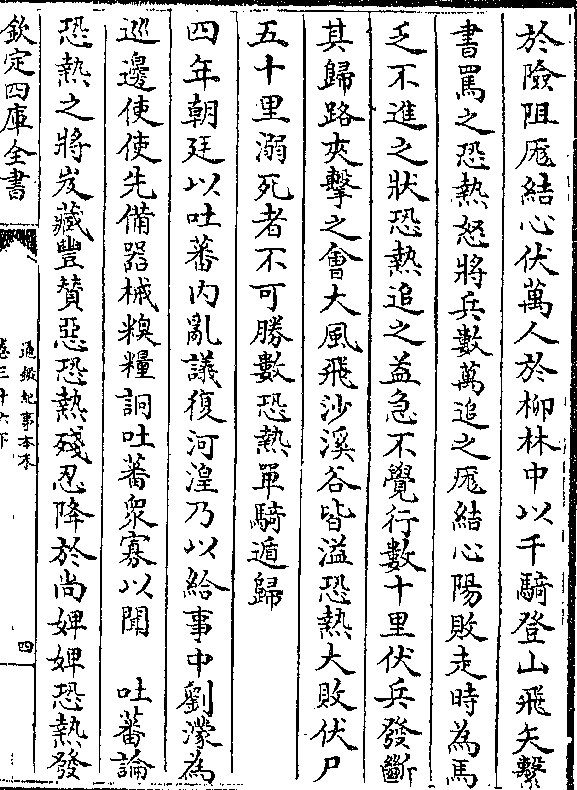 於險阻厖結心伏萬人於柳林中以千騎登山飛矢繫
書罵之恐熱怒將兵數萬追之厖結心陽敗走時為馬
乏不進之狀恐熱追之益急不覺行數十里伏兵發斷
其歸路夾擊之會大風飛沙溪谷皆溢恐熱大敗伏尸
五十里溺死者不可勝數恐熱單騎遁歸
四年朝廷以吐蕃內亂議復河湟乃以給事中劉濛為
巡邊使使先備器械糗糧詗吐蕃衆寡以聞　吐蕃論
恐熱之將岌藏豐賛惡恐熱殘忍降於尚婢婢恐熱發
欽定四庫全書
通鑑紀事本末
卷三十六下
四